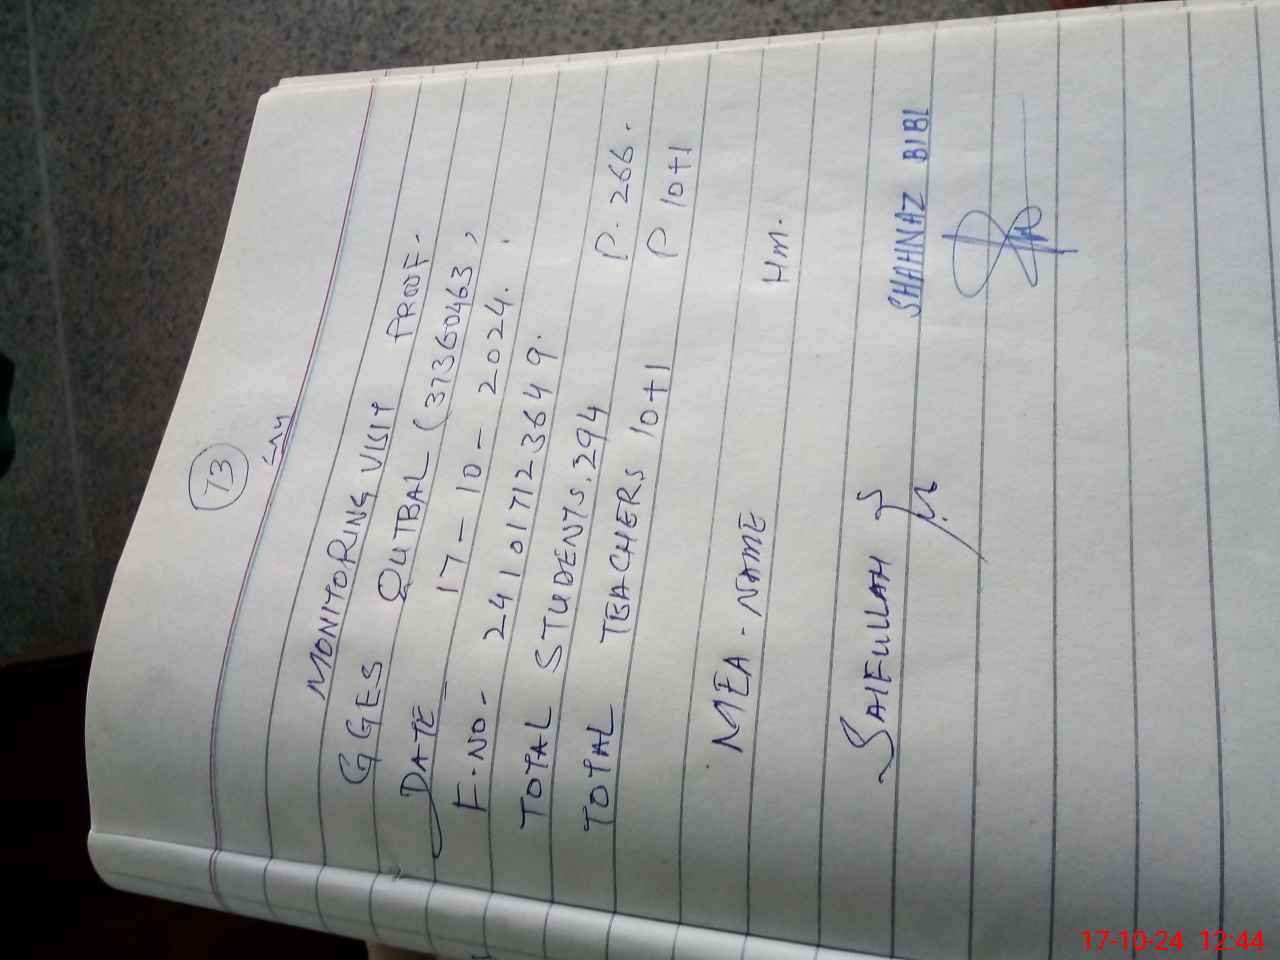 73
MONITORING VISIT PROOF.
GGES QUTBAL (37360463)
DATE - 17-10-2024.
F.NO- 241017123649.
TOTAL STUDENTS.294 P. 266.
TOTAL TEACHERS 10+1 P 10+1
MEA - NAME Hm.
SAIFULLAH SHAHNAZ BIBI
17-10-24 12:44